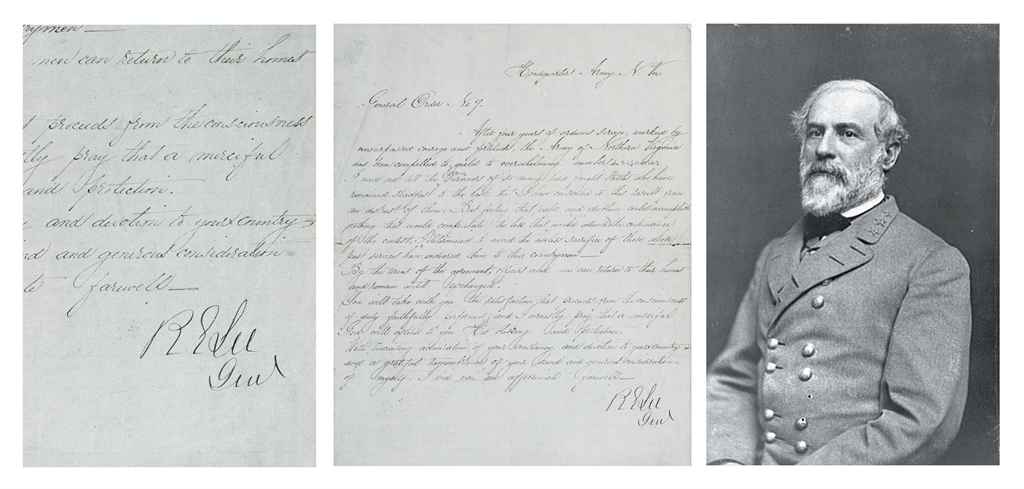 rymen —
men can return to their homes
proceeds from the consciousness
tly pray that a merciful
and Protection.
and devotion to your country —
and generous consideration
farewell —
R E Lee
Genl
Headquarters Army N Va
General Order No 9.
After four years of arduous service, marked by
unsurpassed courage and fortitude, the Army of Northern Virginia
has been compelled to yield to overwhelming
I need not tell the of so many hard fought
remained steadfast to the last that I have consented to this result from
no distrust of them. But feeling that valor and devotion could accomplish
nothing that would compensate for the loss that would the continuance
of the contest, I determined to avoid the useless sacrifice of those whose
past services have endeared them to their countrymen —
By the terms of the agreement, officers and men can return to their homes
and remain until exchanged.
You will take with you the satisfaction that proceeds from the consciousness
of duty faithfully performed, and I earnestly pray that a merciful
God will extend to you His blessing and Protection.
With admiration of your constancy and devotion to your country —
and a grateful remembrance of your kind and generous consideration
of myself, I bid you an affectionate farewell —
R E Lee
Genl